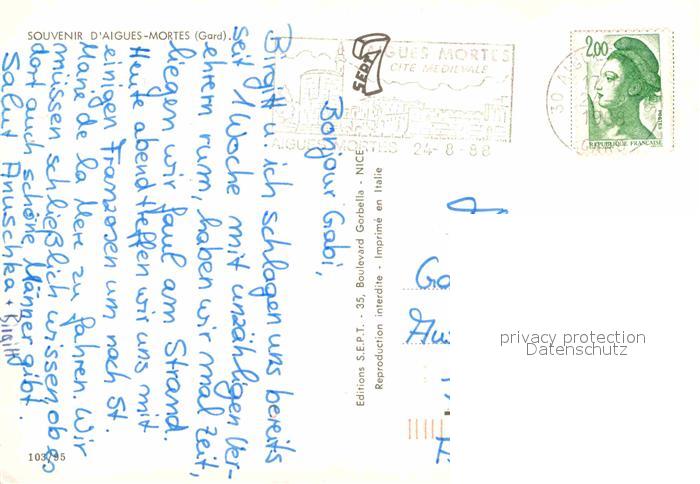 SOUVENIR D'AIGUES-MORTES (Gard).
AIGUES MORTES
CITÉ MÉDIÉVALE
AIGUES-MORTES 24-8-88
SEPT
2,00
REPUBLIQUE FRANÇAISE
POSTES
30 AIG
GARD
Bonjour Gabi,
Birgitt u. ich schlagen uns bereits
seit 1 Woche mit unzähligen Ver-
ehrern rum, haben wir mal Zeit,
liegen wir faul am Strand.
Heute abend treffen wir uns mit
einigen Franzosen um nach St.
Marie de la Mere zu fahren. Wir
müssen schließlich wissen, ob es
dort auch schöne Männer gibt.
Salut Anuschka + Birgitt
Editions S.E.P.T. - 35, Boulevard Gorbella - NICE
Reproduction interdite - Imprimé en Italie
Ga
privacy protection
Datenschutz
103/95